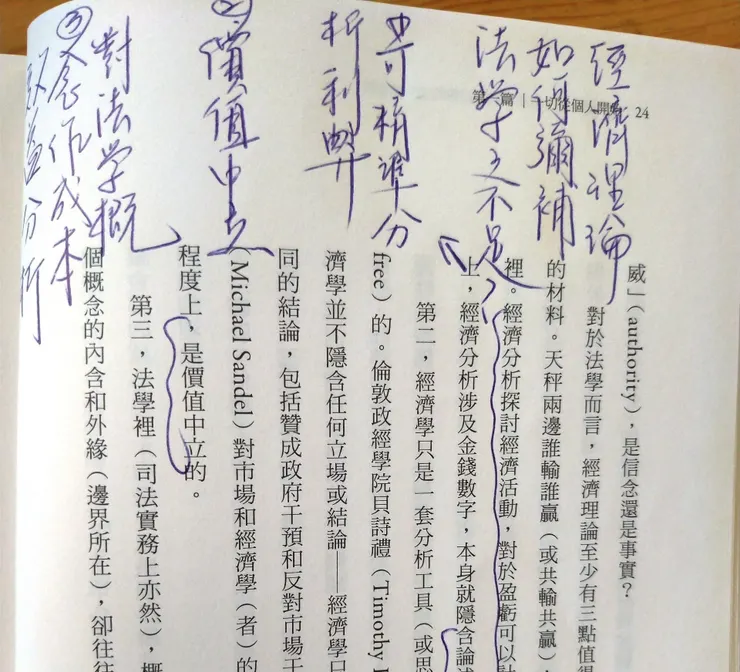 第一篇 | 一切從個人開始 24
經濟理論
如何彌補
法學之不足?
可精準分
析利弊
② 價值中立
對法學概
③ 念作成本
效益分析
威」(authority),是信念還是事實?
對於法學而言,經濟理論至少有三點值得
的材料。天秤兩邊誰輸誰贏(或共輸共贏),
裡。經濟分析探討經濟活動,對於盈虧可以
上,經濟分析涉及金錢數字,本身就隱含論述
第二,經濟學只是一套分析工具(或思
free)的。倫敦政經學院貝詩禮(Timothy
濟學並不隱含任何立場或結論——經濟學只
同的結論,包括贊成政府干預和反對市場干
(Michael Sandel)對市場和經濟學(者)的
程度上,是價值中立的。
第三,法學裡(司法實務上亦然),概
個概念的內含和外緣(邊界所在),卻往往